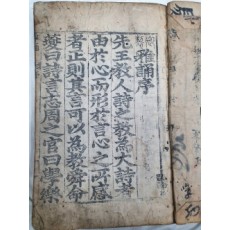 御製雅誦序
先王敎人詩之敎爲大詩者
由於心而形於言心之所感
者正則其言可以爲敎舜命
夔曰詩言志周之官曰學樂